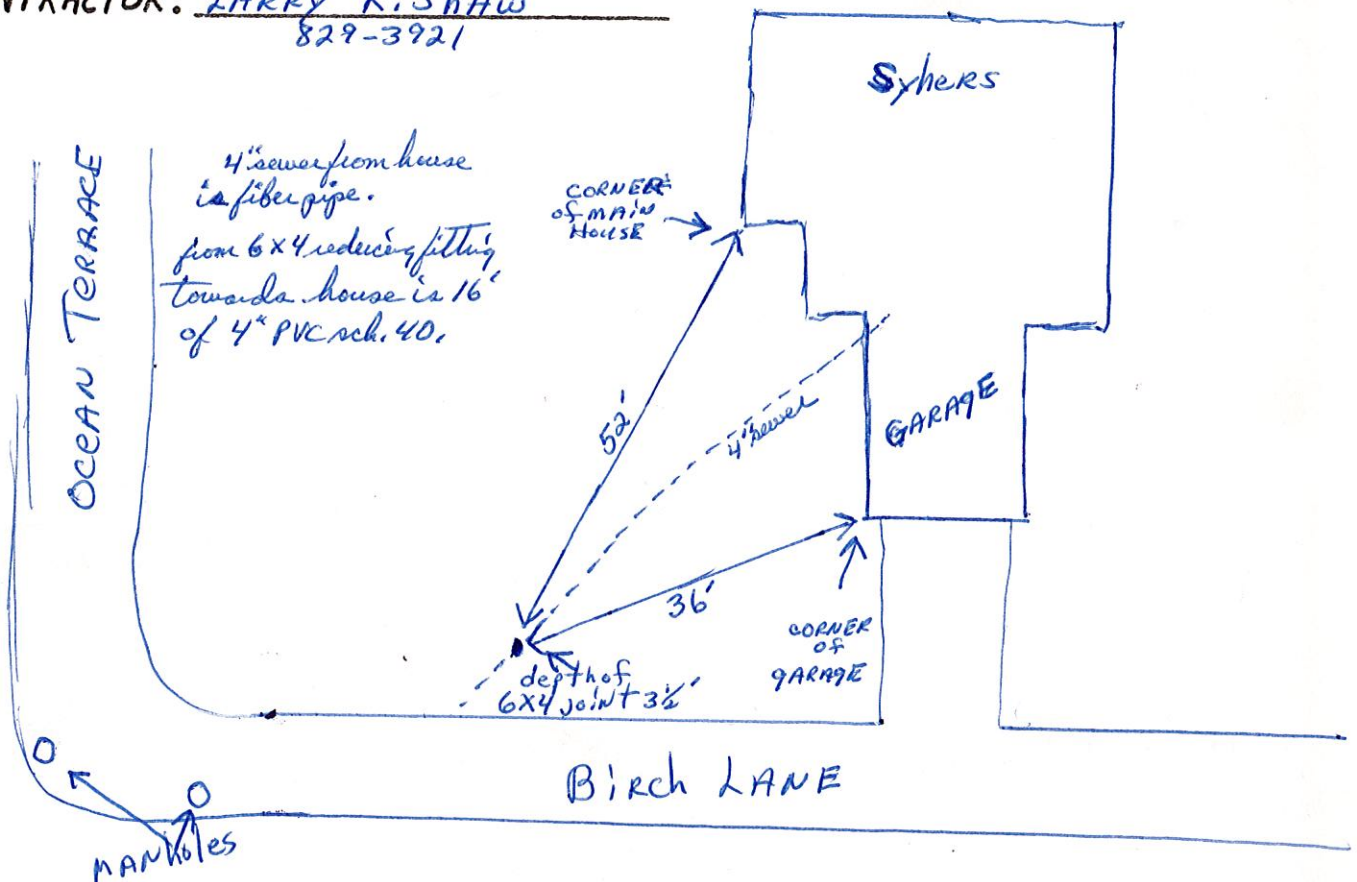 NTRACTOR: LARRY R. SHAW
829-3921
Syhers
4" sewer from house
is fiber pipe.
from 6X4 reducing fitting
towards house is 16'
of 4" PVC sch. 40.
CORNER
of MAIN
HOUSE
OCEAN TERRACE
52'
4" sewer
GARAGE
36'
CORNER
OF
GARAGE
depth of
6X4 joint 3½'
BIRCH LANE
MANholes